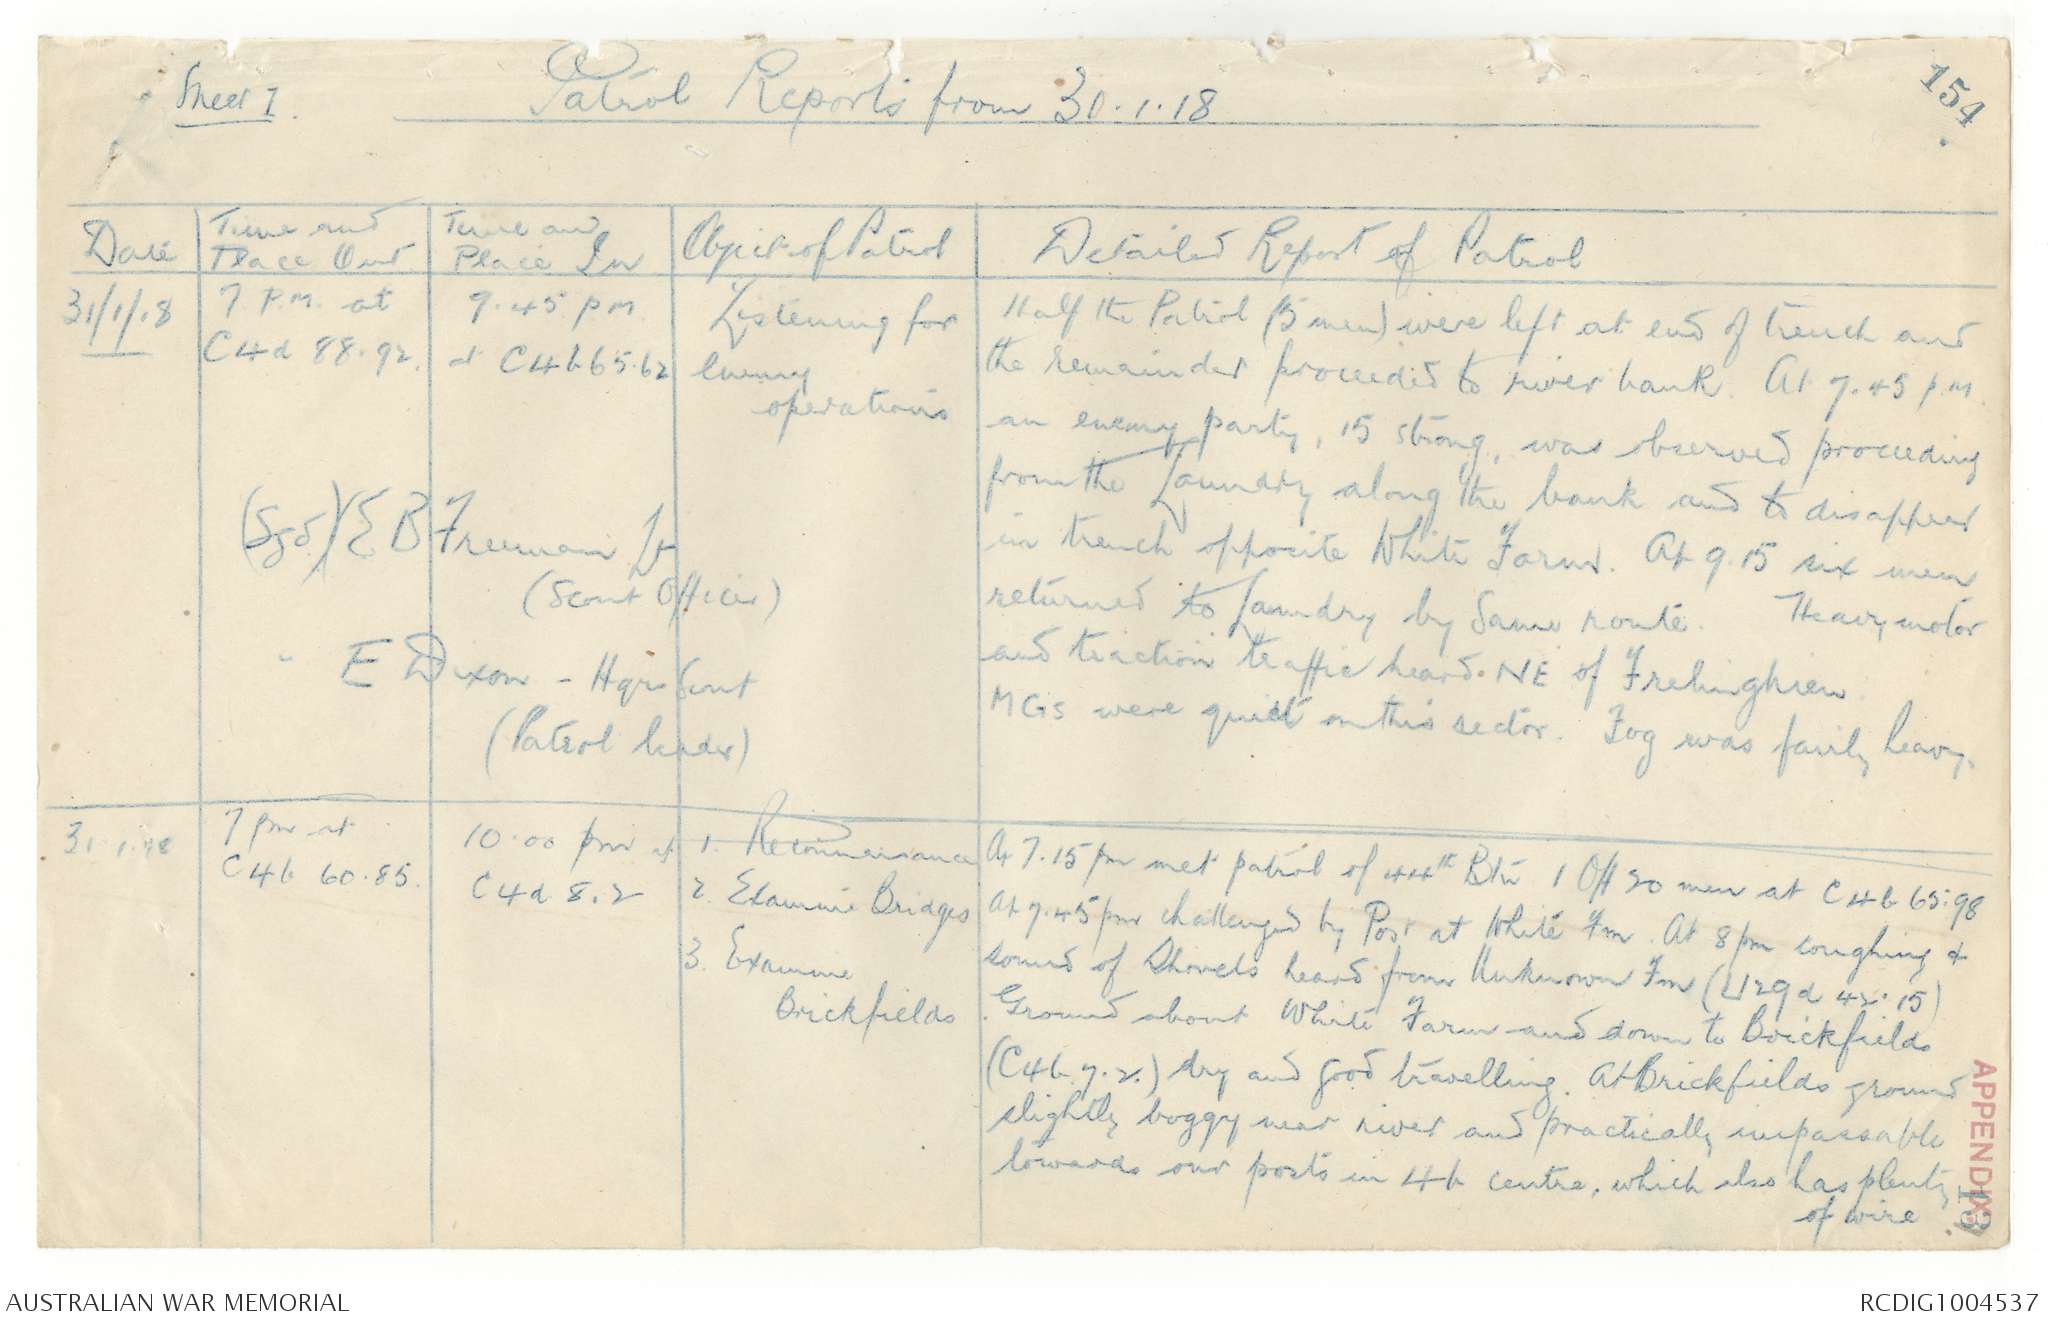 Sheet I.
Patrol Reports from 30.1.18
154
Date
Time and
Place Out
Time and
Place In
Object of Patrol
Detailed Report of Patrol
31/1/18
7 P.M. at
C4d 88.92.
9.45 pm
at C4b65.62
Listening for
Enemy
operations
Half the Patrol (5 men) were left at end of trench and
the remainder proceeded to river bank. At 7.45 p.m.
an enemy party, 15 strong, was observed proceeding
from the Laundry along the bank and to disappear
in trench opposite White Farm. At 9.15 six men
returned to Laundry by same route. Heavy motor
and traction traffic heard. NE of Frelinghien
MGs were quiet on this sector. Fog was fairly heavy.
(Sgd) E B Freeman Lt
(Scout Officer)
" E Dixon - Hqrs Scout
(Patrol leader)
31.1.18
7 pm at
C4b 60.85.
10.00 pm at
C4d 8.2
1. Reconnaissance
2. Examine Bridges
3. Examine
Brickfields
At 7.15 pm met patrol of 44th Btn 1 Off 20 men at C4b 65.98
At 7.45 pm challenged by Post at White Fm. At 8 pm coughing &
sound of Shovels heard from Unknown Fm (U29d 42.15)
Ground about White Farm and down to Brickfields
(C4b.7.2.) dry and good travelling. At Brickfields ground
slightly boggy near river and practically impassable
towards our posts in 4b centre, which also has plenty
of wire
APPENDIX
13
AUSTRALIAN WAR MEMORIAL
RCDIG1004537